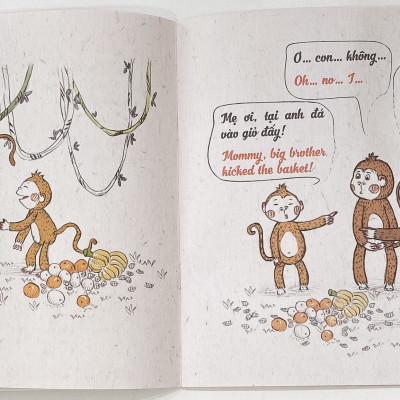 Ơ... con... không...
Oh... no... I...
Mẹ ơi, tại anh đá
vào giỏ đấy!
Mommy, big brother
kicked the basket!